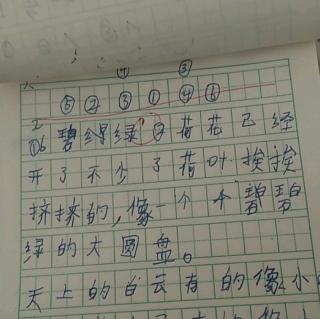 ④ ③
⑤ ② ③ ① ④ ⑥
2
①6 碧绿绿 荷花已经
开了不少了荷叶挨挨
挤挤的,像一个个碧碧
绿的大圆盘。
天上的白云有的像小